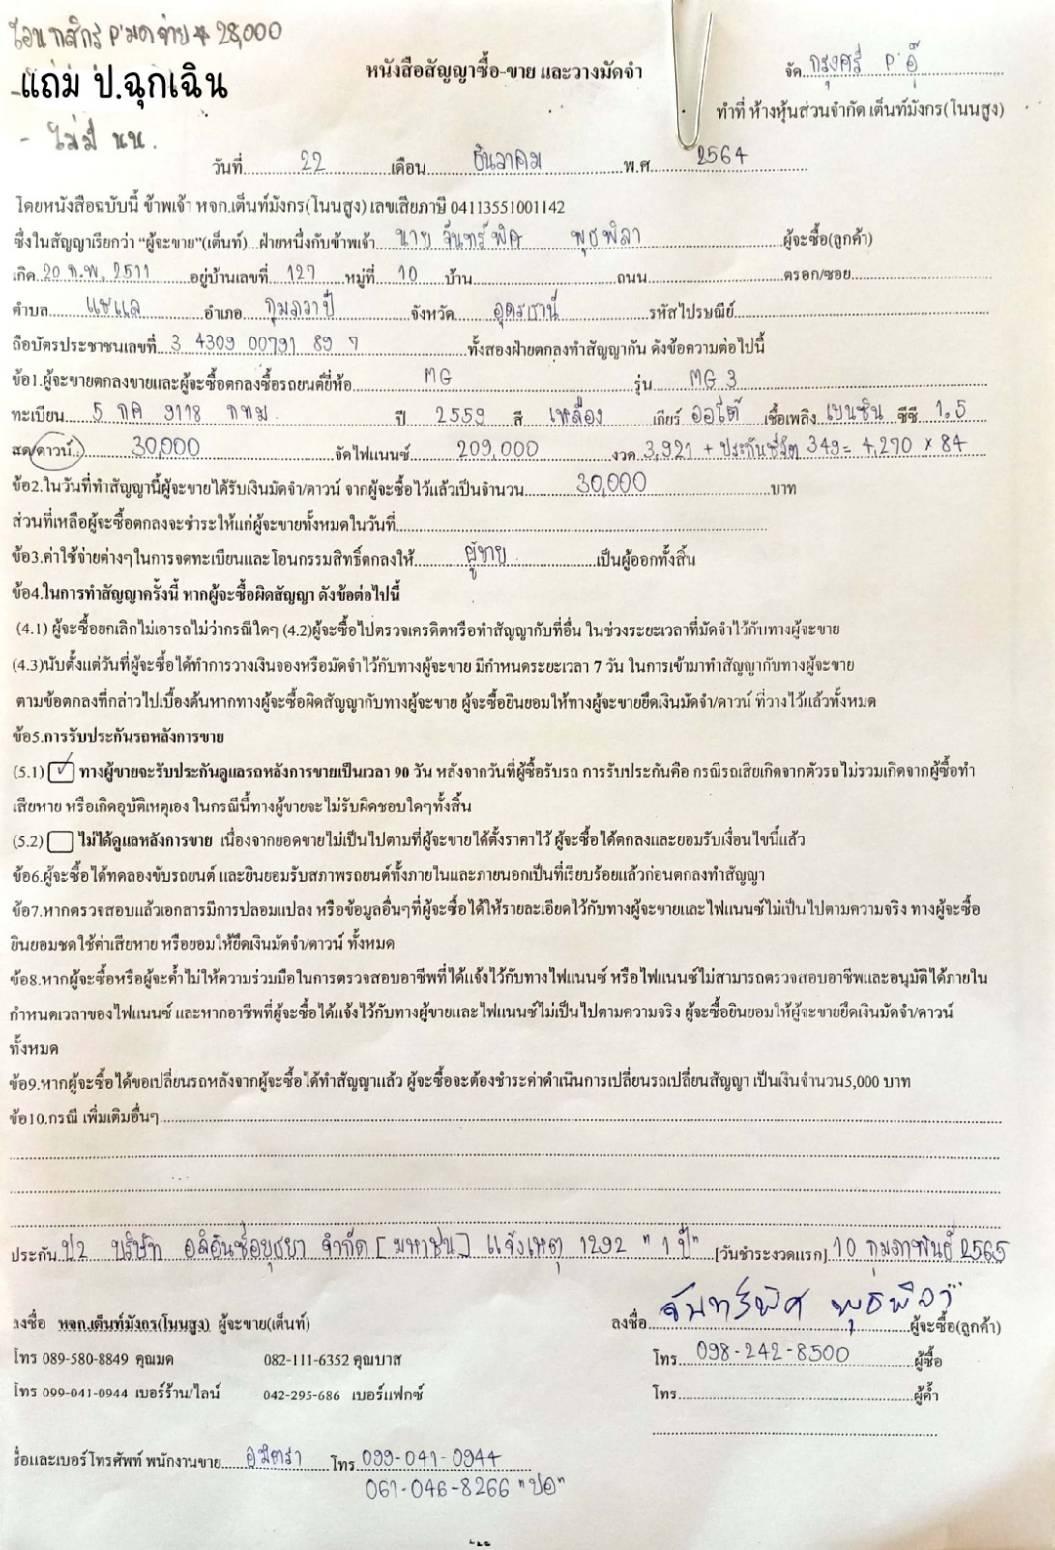 โอน กสิกร P'มด จ่าย 28,000
แถม ป.ฉุกเฉิน
- ไม่มี นน.
หนังสือสัญญาซื้อ-ขาย และวางมัดจำ
จัด กรุงศรี P'อู๋
ทำที่ ห้างหุ้นส่วนจำกัด เต็นท์มังกร(โนนสูง)
วันที่ 22 เดือน ธันวาคม พ.ศ. 2564
โดยหนังสือฉบับนี้ ข้าพเจ้า หจก.เต็นท์มังกร(โนนสูง) เลขเสียภาษี 04113551001142
ซึ่งในสัญญาเรียกว่า "ผู้จะขาย"(เต็นท์) ฝ่ายหนึ่งกับข้าพเจ้า นาย จันทร์พิศ พุธพิลา ผู้จะซื้อ(ลูกค้า)
เกิด 20 ก.พ. 2511 อยู่บ้านเลขที่ 127 หมู่ที่ 10 บ้าน ถนน ตรอก/ซอย
ตำบล แชแล อำเภอ กุมภวาปี จังหวัด อุดรธานี รหัสไปรษณีย์
ถือบัตรประชาชนเลขที่ 3 4309 00791 89 7 ทั้งสองฝ่ายตกลงทำสัญญากัน ดังข้อความต่อไปนี้
ข้อ1.ผู้จะขายตกลงขายและผู้จะซื้อตกลงซื้อรถยนต์ยี่ห้อ MG รุ่น MG 3
ทะเบียน 5 กค 9118 กทม. ปี 2559 สี เหลือง เกียร์ ออโต้ เชื้อเพลิง เบนซิน ซีซี 1.5
สด/ดาวน์ 30,000 จัดไฟแนนซ์ 209,000 งวด 3,921 + ประกันชีวิต 349 = 4,270 x 84
ข้อ2.ในวันที่ทำสัญญานี้ผู้จะขายได้รับเงินมัดจำ/ดาวน์ จากผู้จะซื้อไว้แล้วเป็นจำนวน 30,000 บาท
ส่วนที่เหลือผู้จะซื้อตกลงจะชำระให้แก่ผู้จะขายทั้งหมดในวันที่
ข้อ3.ค่าใช้จ่ายต่างๆในการจดทะเบียนและโอนกรรมสิทธิ์ตกลงให้ ผู้ขาย เป็นผู้ออกทั้งสิ้น
ข้อ4.ในการทำสัญญาครั้งนี้ หากผู้จะซื้อผิดสัญญา ดังข้อต่อไปนี้
(4.1) ผู้จะซื้อยกเลิกไม่เอารถไม่ว่ากรณีใดๆ (4.2)ผู้จะซื้อไปตรวจเครดิตหรือทำสัญญากับที่อื่น ในช่วงระยะเวลาที่มัดจำไว้กับทางผู้จะขาย
(4.3)นับตั้งแต่วันที่ผู้จะซื้อได้ทำการวางเงินจองหรือมัดจำไว้กับทางผู้จะขาย มีกำหนดระยะเวลา 7 วัน ในการเข้ามาทำสัญญากับทางผู้จะขาย
ตามข้อตกลงที่กล่าวไปเบื้องต้นหากทางผู้จะซื้อผิดสัญญากับทางผู้จะขาย ผู้จะซื้อยินยอมให้ทางผู้จะขายยึดเงินมัดจำ/ดาวน์ ที่วางไว้แล้วทั้งหมด
ข้อ5.การรับประกันรถหลังการขาย
(5.1) ✓ ทางผู้ขายจะรับประกันดูแลรถหลังการขายเป็นเวลา 90 วัน หลังจากวันที่ผู้ซื้อรับรถ การรับประกันคือ กรณีรถเสียเกิดจากตัวรถ ไม่รวมเกิดจากผู้ซื้อทำ
เสียหาย หรือเกิดอุบัติเหตุเอง ในกรณีนี้ทางผู้ขายจะไม่รับผิดชอบใดๆทั้งสิ้น
(5.2) ไม่ได้ดูแลหลังการขาย เนื่องจากยอดขายไม่เป็นไปตามที่ผู้จะขายได้ตั้งราคาไว้ ผู้จะซื้อได้ตกลงและยอมรับเงื่อนไขนี้แล้ว
ข้อ6.ผู้จะซื้อได้ทดลองขับรถยนต์ และยินยอมรับสภาพรถยนต์ทั้งภายในและภายนอกเป็นที่เรียบร้อยแล้วก่อนตกลงทำสัญญา
ข้อ7.หากตรวจสอบแล้วเอกสารมีการปลอมแปลง หรือข้อมูลอื่นๆที่ผู้จะซื้อได้ให้รายละเอียดไว้กับทางผู้จะขายและไฟแนนซ์ไม่เป็นไปตามความจริง ทางผู้จะซื้อ
ยินยอมชดใช้ค่าเสียหาย หรือยอมให้ยึดเงินมัดจำ/ดาวน์ ทั้งหมด
ข้อ8.หากผู้จะซื้อหรือผู้จะค้ำไม่ให้ความร่วมมือในการตรวจสอบอาชีพที่ได้แจ้งไว้กับทางไฟแนนซ์ หรือไฟแนนซ์ไม่สามารถตรวจสอบอาชีพและอนุมัติได้ภายใน
กำหนดเวลาของไฟแนนซ์ และหากอาชีพที่ผู้จะซื้อได้แจ้งไว้กับทางผู้ขายและไฟแนนซ์ไม่เป็นไปตามความจริง ผู้จะซื้อยินยอมให้ผู้จะขายยึดเงินมัดจำ/ดาวน์
ทั้งหมด
ข้อ9.หากผู้จะซื้อได้ขอเปลี่ยนรถหลังจากผู้จะซื้อได้ทำสัญญาแล้ว ผู้จะซื้อจะต้องชำระค่าดำเนินการเปลี่ยนรถเปลี่ยนสัญญา เป็นเงินจำนวน5,000 บาท
ข้อ10.กรณี เพิ่มเติมอื่นๆ
ประกัน ป2 บริษัท อลิอันซ์อยุธยา จำกัด [มหาชน] แจ้งเหตุ 1292 "1 ปี" [วันชำระงวดแรก] 10 กุมภาพันธ์ 2565
ลงชื่อ หจก.เต็นท์มังกร(โนนสูง) ผู้จะขาย(เต็นท์)
ลงชื่อ จันทร์พิศ พุธพิลา ผู้จะซื้อ(ลูกค้า)
โทร 089-580-8849 คุณมด 082-111-6352 คุณบาส
โทร 098-242-8500 ผู้ซื้อ
โทร 099-041-0944 เบอร์ร้าน/ไลน์ 042-295-686 เบอร์แฟกซ์
โทร ผู้ค้ำ
ชื่อและเบอร์โทรศัพท์ พนักงานขาย อมิตรา โทร 099-041-0944
061-046-8266 "ปอ"